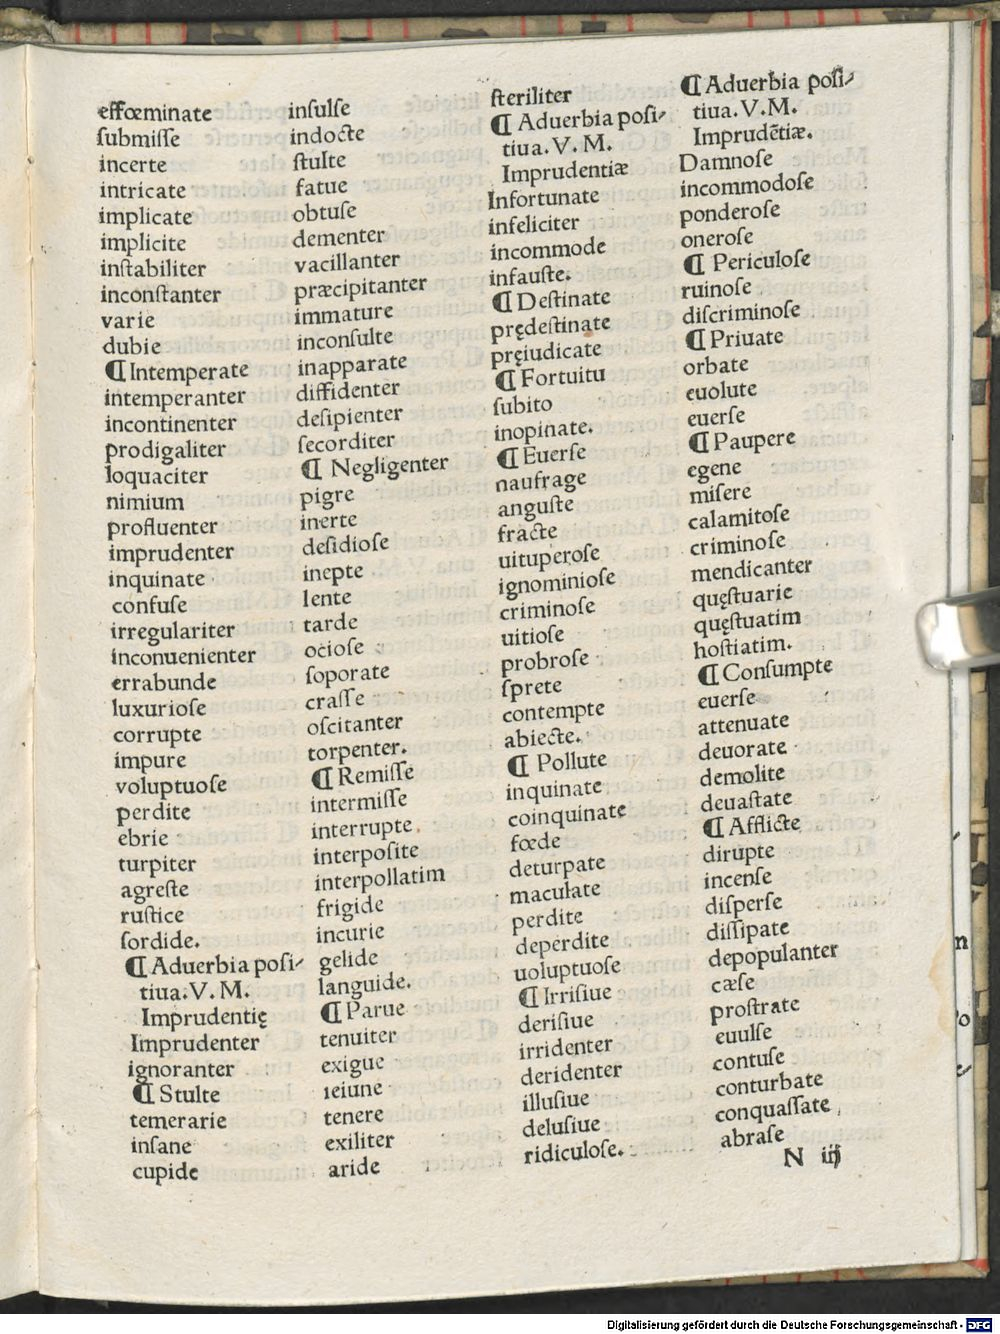 effœminate
ſubmiſſe
incerte
intricate
implicate
implicite
inſtabiliter
inconſtanter
varie
dubie
¶ Intemperate
intemperanter
incontinenter
prodigaliter
loquaciter
nimium
profluenter
imprudenter
inquinate
confuſe
irregulariter
inconuenienter
errabunde
luxurioſe
corrupte
impure
voluptuoſe
perdite
ebrie
turpiter
agreſte
ruſtice
ſordide.
¶ Aduerbia poſi-
tiua. V. M.
Imprudentię
Imprudenter
ignoranter
¶ Stulte
temerarie
inſane
cupide
inſulſe
indocte
ſtulte
fatue
obtuſe
dementer
vacillanter
præcipitanter
immature
inconſulte
inapparate
diffidenter
deſipienter
ſecorditer
¶ Negligenter
pigre
inerte
deſidioſe
inepte
lente
tarde
ocioſe
ſoporate
craſſe
oſcitanter
torpenter.
¶ Remiſſe
intermiſſe
interrupte
interpoſite
interpollatim
frigide
incurie
gelide
languide.
¶ Parue
tenuiter
exigue
ieiune
tenere
exiliter
aride
ſteriliter
¶ Aduerbia poſi-
tiua. V. M.
Imprudentiæ
Infortunate
infeliciter
incommode
infauſte.
¶ Deſtinate
prędeſtinate
pręiudicate
¶ Fortuitu
ſubito
inopinate.
¶ Euerſe
naufrage
anguſte
fracte
uituperoſe
ignominioſe
criminoſe
uitioſe
probroſe
ſprete
contempte
abiecte.
¶ Pollute
inquinate
coinquinate
fœde
deturpate
maculate
perdite
deperdite
uoluptuoſe
¶ Irriſiue
deriſiue
irridenter
deridenter
illuſiue
deluſiue
ridiculoſe.
¶ Aduerbia poſi-
tiua. V. M.
Imprudẽtiæ.
Damnoſe
incommodoſe
ponderoſe
oneroſe
¶ Periculoſe
ruinoſe
diſcriminoſe
¶ Priuate
orbate
euolute
euerſe
¶ Paupere
egene
miſere
calamitoſe
criminoſe
mendicanter
quęſtuarie
quęſtuatim
hoſtiatim.
¶ Conſumpte
euerſe
attenuate
deuorate
demolite
deuaſtate
¶ Afflicte
dirupte
incenſe
diſperſe
diſſipate
depopulanter
cæſe
proſtrate
euulſe
contuſe
conturbate
conquaſſate
abraſe
N iij
Digitalisierung gefördert durch die Deutsche Forschungsgemeinschaft - DFG